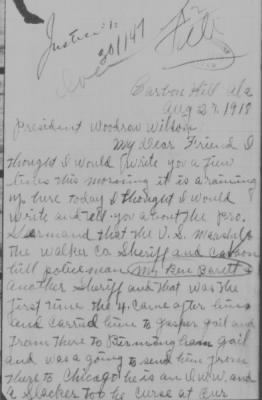 Justice:
201147
File
Carbon Hill Ala
Aug 27, 1918
President Woodrow Wilson
My Dear Friend I
thought I would write you a few
lines this morning it is a raining
up here today I thought I would
write and tell you about the pro.
German that the U.S. Marshal
the walker Co Sheriff and carbon
hill policeman My Bue Barett &
Another Sheriff and that was the
first time the 4. came after him
and carried him to Jasper gail and
from there to Birmingham gail
and was a going to send him from
there to Chicago he is an I.W.W. and
a Slacker too he curse at Our